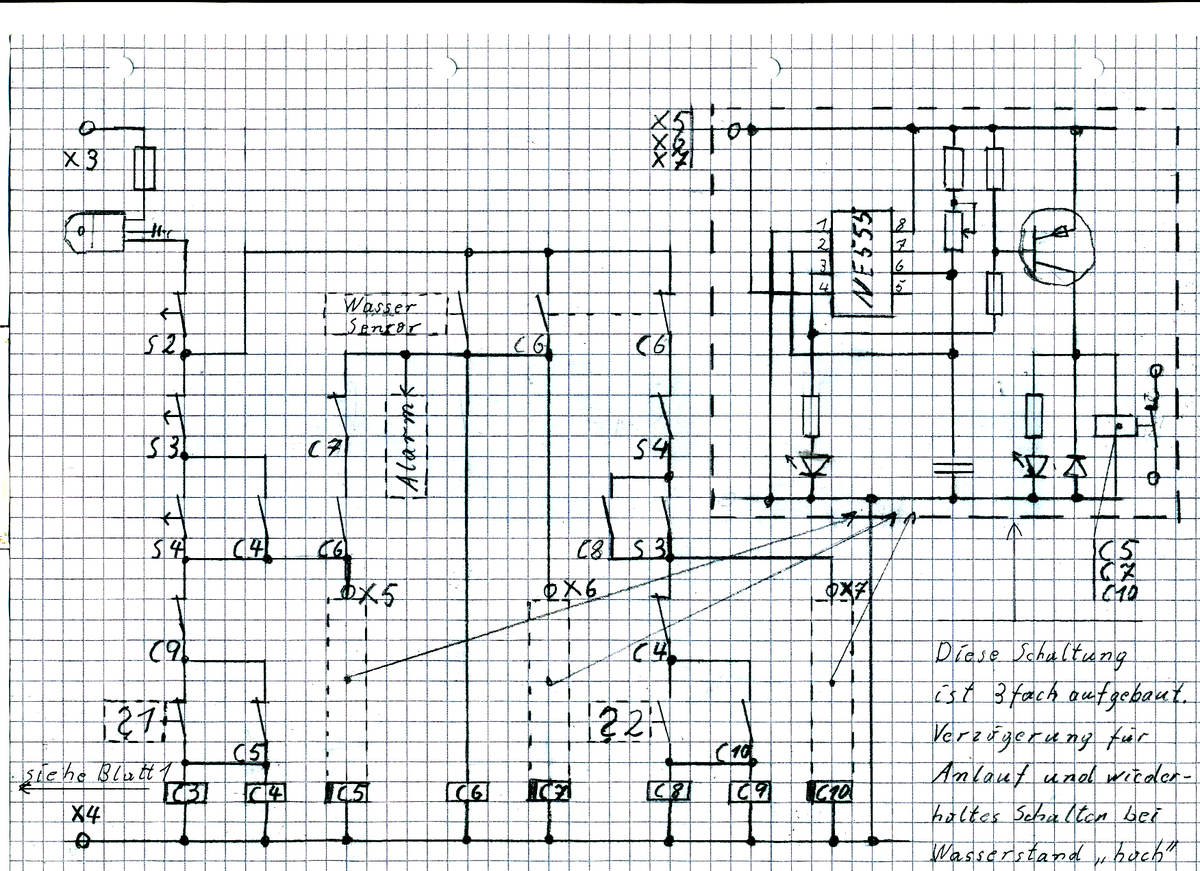 X3
X5
X6
X7
1
2
3
4
NE555
8
7
6
5
Wasser
Sensor
S2
C6
C6
S3
C7
Alarm
S4
S4
C4
C6
C8
S3
X5
X6
X7
C5
C7
C10
C9
C4
Diese Schaltung
ist 3fach aufgebaut.
Verzögerung für
Anlauf und wieder-
holtes Schalten bei
Wasserstand „hoch"
C5
C10
siehe Blatt 1
C3
C4
C5
C6
C7
C8
C9
C10
X4